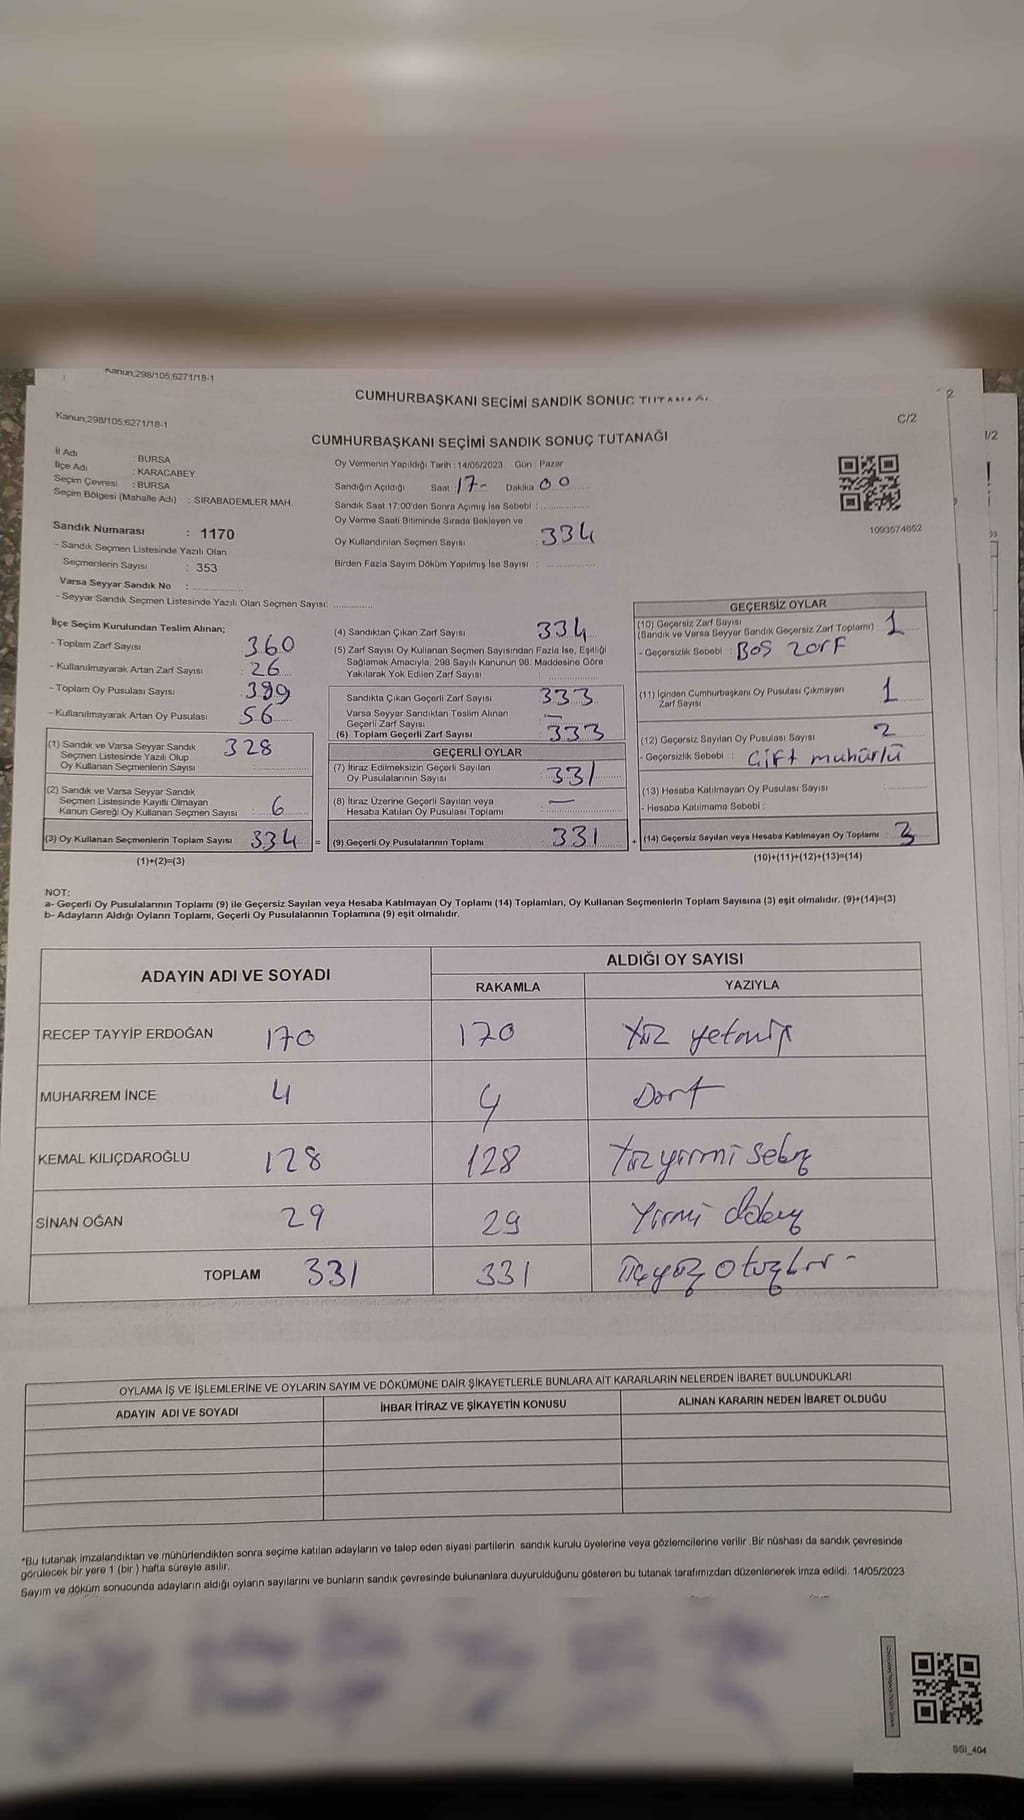 Kanun;298/105;6271/18-1
CUMHURBAŞKANI SEÇİMİ SANDIK SONUÇ
2
Kanun;298/105;6271/18-1
C/2
1/2
CUMHURBAŞKANI SEÇİMİ SANDIK SONUÇ TUTANAĞI
İl Adı : BURSA
İlçe Adı : KARACABEY
Seçim Çevresi : BURSA
Seçim Bölgesi (Mahalle Adı) : SIRABADEMLER MAH.
Sandık Numarası : 1170
- Sandık Seçmen Listesinde Yazılı Olan
Seçmenlerin Sayısı : 353
Varsa Seyyar Sandık No :
- Seyyar Sandık Seçmen Listesinde Yazılı Olan Seçmen Sayısı:
Oy Vermenin Yapıldığı Tarih :14/05/2023 Gün : Pazar
Sandığın Açıldığı Saat 17- Dakika 00
Sandık Saat 17:00'den Sonra Açımış İse Sebebi :
Oy Verme Saati Bitiminde Sırada Bekleyen ve
Oy Kullandırılan Seçmen Sayısı : 334
Birden Fazla Sayım Döküm Yapılmış İse Sayısı :
1093574652
İlçe Seçim Kurulundan Teslim Alınan;
- Toplam Zarf Sayısı : 360
- Kullanılmayarak Artan Zarf Sayısı : 26
- Toplam Oy Pusulası Sayısı : 399
- Kullanılmayarak Artan Oy Pusulası : 56
(1) Sandık ve Varsa Seyyar Sandık
Seçmen Listesinde Yazılı Olup
Oy Kullanan Seçmenlerin Sayısı : 328
(2) Sandık ve Varsa Seyyar Sandık
Seçmen Listesinde Kayıtlı Olmayan
Kanun Gereği Oy Kullanan Seçmen Sayısı : 6
(3) Oy Kullanan Seçmenlerin Toplam Sayısı : 334 =
(1)+(2)=(3)
(4) Sandıktan Çıkan Zarf Sayısı : 334
(5) Zarf Sayısı Oy Kullanan Seçmen Sayısından Fazla İse, Eşitliği
Sağlamak Amacıyla; 298 Sayılı Kanunun 98. Maddesine Göre
Yakılarak Yok Edilen Zarf Sayısı :
Sandıkta Çıkan Geçerli Zarf Sayısı : 333
Varsa Seyyar Sandıktan Teslim Alınan
Geçerli Zarf Sayısı : —
(6) Toplam Geçerli Zarf Sayısı : 333
GEÇERLİ OYLAR
(7) İtiraz Edilmeksizin Geçerli Sayılan
Oy Pusulalarının Sayısı : 331
(8) İtiraz Üzerine Geçerli Sayılan veya
Hesaba Katılan Oy Pusulası Toplamı : —
(9) Geçerli Oy Pusulalarının Toplamı : 331 +
GEÇERSİZ OYLAR
(10) Geçersiz Zarf Sayısı
(Sandık ve Varsa Seyyar Sandık Geçersiz Zarf Toplamı) : 1
- Geçersizlik Sebebi : Boş zarf
(11) İçinden Cumhurbaşkanı Oy Pusulası Çıkmayan
Zarf Sayısı : 1
(12) Geçersiz Sayılan Oy Pusulası Sayısı : 2
- Geçersizlik Sebebi : Çift mühürlü
(13) Hesaba Katılmayan Oy Pusulası Sayısı :
- Hesaba Katılmama Sebebi :
(14) Geçersiz Sayılan veya Hesaba Katılmayan Oy Toplamı : 3
(10)+(11)+(12)+(13)=(14)
NOT:
a- Geçerli Oy Pusulalarının Toplamı (9) ile Geçersiz Sayılan veya Hesaba Katılmayan Oy Toplamı (14) Toplamları, Oy Kullanan Seçmenlerin Toplam Sayısına (3) eşit olmalıdır. (9)+(14)=(3)
b- Adayların Aldığı Oyların Toplamı, Geçerli Oy Pusulalarının Toplamına (9) eşit olmalıdır.
ADAYIN ADI VE SOYADI ALDIĞI OY SAYISI
RAKAMLA YAZIYLA
RECEP TAYYİP ERDOĞAN 170 170 Yüz yetmiş
MUHARREM İNCE 4 4 Dört
KEMAL KILIÇDAROĞLU 128 128 Yüzyirmi sekiz
SİNAN OĞAN 29 29 Yirmi dokuz
TOPLAM 331 331 üçyüz otuzbir -
OYLAMA İŞ VE İŞLEMLERİNE VE OYLARIN SAYIM VE DÖKÜMÜNE DAİR ŞİKAYETLERLE BUNLARA AİT KARARLARIN NELERDEN İBARET BULUNDUKLARI
ADAYIN ADI VE SOYADI İHBAR İTİRAZ VE ŞİKAYETİN KONUSU ALINAN KARARIN NEDEN İBARET OLDUĞU
*Bu tutanak imzalandıktan ve mühürlendikten sonra seçime katılan adayların ve talep eden siyasi partilerin sandık kurulu üyelerine veya gözlemcilerine verilir. Bir nüshası da sandık çevresinde
görülecek bir yere 1 (bir) hafta süreyle asılır.
Sayım ve döküm sonucunda adayların aldığı oyların sayılarını ve bunların sandık çevresinde bulunanlara duyurulduğunu gösteren bu tutanak tarafımızdan düzenlenerek imza edildi. 14/05/2023
SSI_404